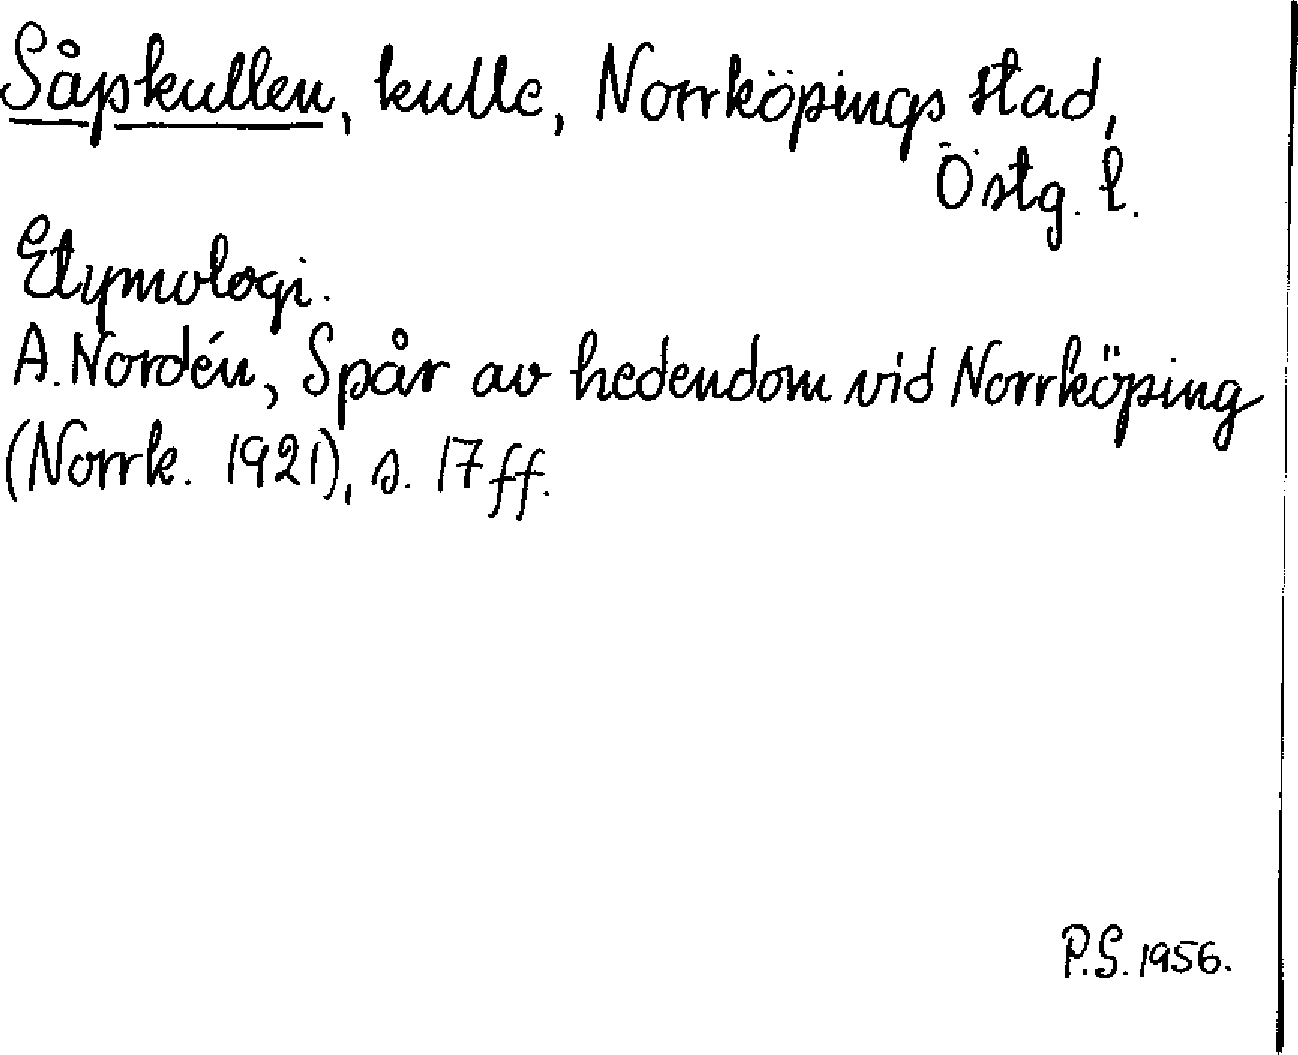 Såpkullen, kulle, Norrköpings stad,
Östg. l.
Etymologi.
A. Nordén, Spår av hedendom vid Norrköping
(Norrk. 1921), s. 17 ff.
P.S. 1956.